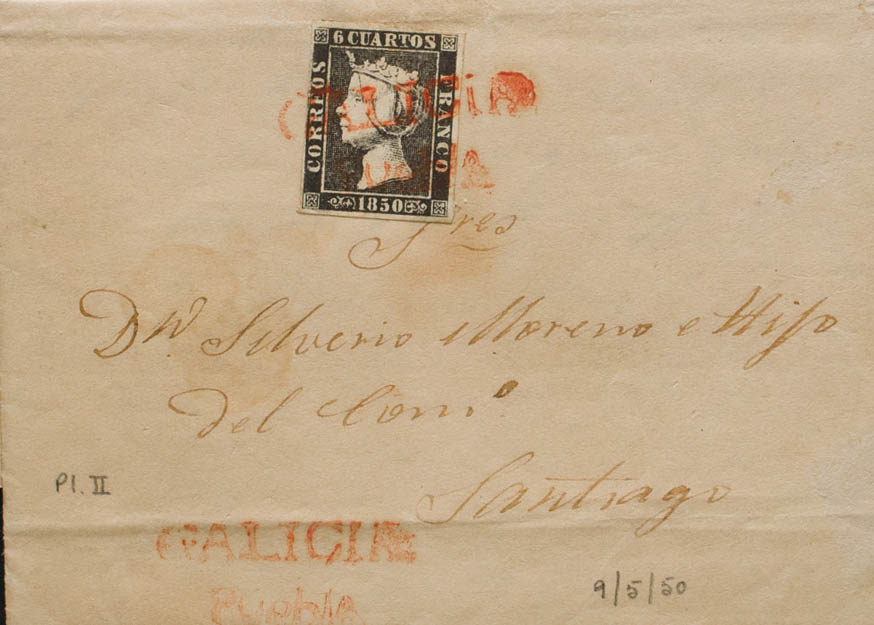 6 CUARTOS
CORREOS
FRANCO
1850
Sres
Dn. Silverio Moreno e Hijo
del Como.
Santiago
Pl. II
GALICIA
PuebLA
9/5/50